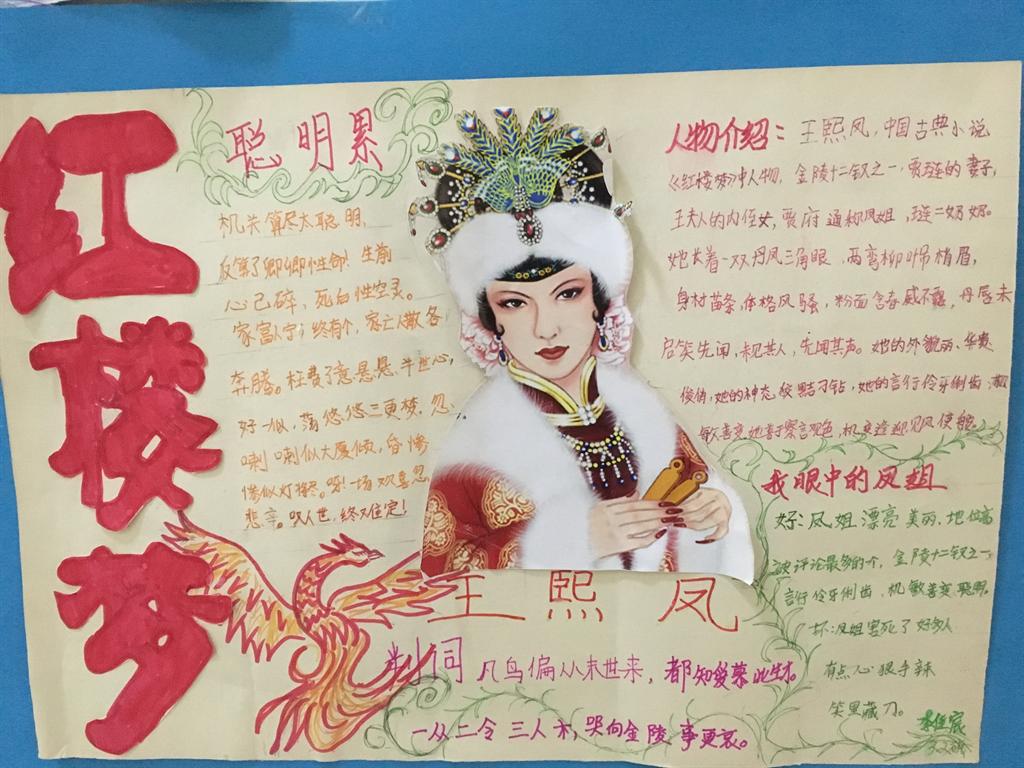 红楼梦
聪明累
机关算尽太聪明,
反算了卿卿性命!生前
心已碎,死白性空灵。
家富人宁;终有个,家亡人散各
奔腾。枉费了意悬悬半世心,
好一似,荡悠悠三更梦。忽
喇喇似大厦倾,昏惨
惨似灯将尽。呀!一场欢喜忽
悲辛。叹人世,终难定!
王熙凤
判词 凡鸟偏从末世来,都知爱慕此生才。
一从二令三人木,哭向金陵事更哀。
人物介绍:王熙凤,中国古典小说
《红楼梦》中人物,金陵十二钗之一,贾琏的妻子,
王夫人的内侄女,贾府通称凤姐,琏二奶奶。
她长着一双丹凤三角眼,两弯柳吊梢眉,
身材苗条,体格风骚,粉面含春威不露,丹唇未
启笑先闻,未见其人,先闻其声。她的外貌美丽、华贵
俊俏,她的神态狡黠刁钻,她的言行伶牙俐齿,机
敏善变她善于察言观色,机变逢迎见风使舵
我眼中的凤姐
好:凤姐漂亮美丽,地位高
被评论最多的个,金陵十二钗之一
言行伶牙俐齿,机敏善变聪明。
坏:凤姐害死了好多人
有点心狠手辣
笑里藏刀。